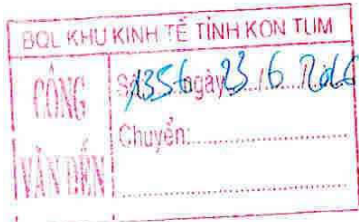 BQL KHU KINH TẾ TỈNH KON TUM
CÔNG VĂN ĐẾN
Số 1356 ngày 23/6/2016
Chuyển: